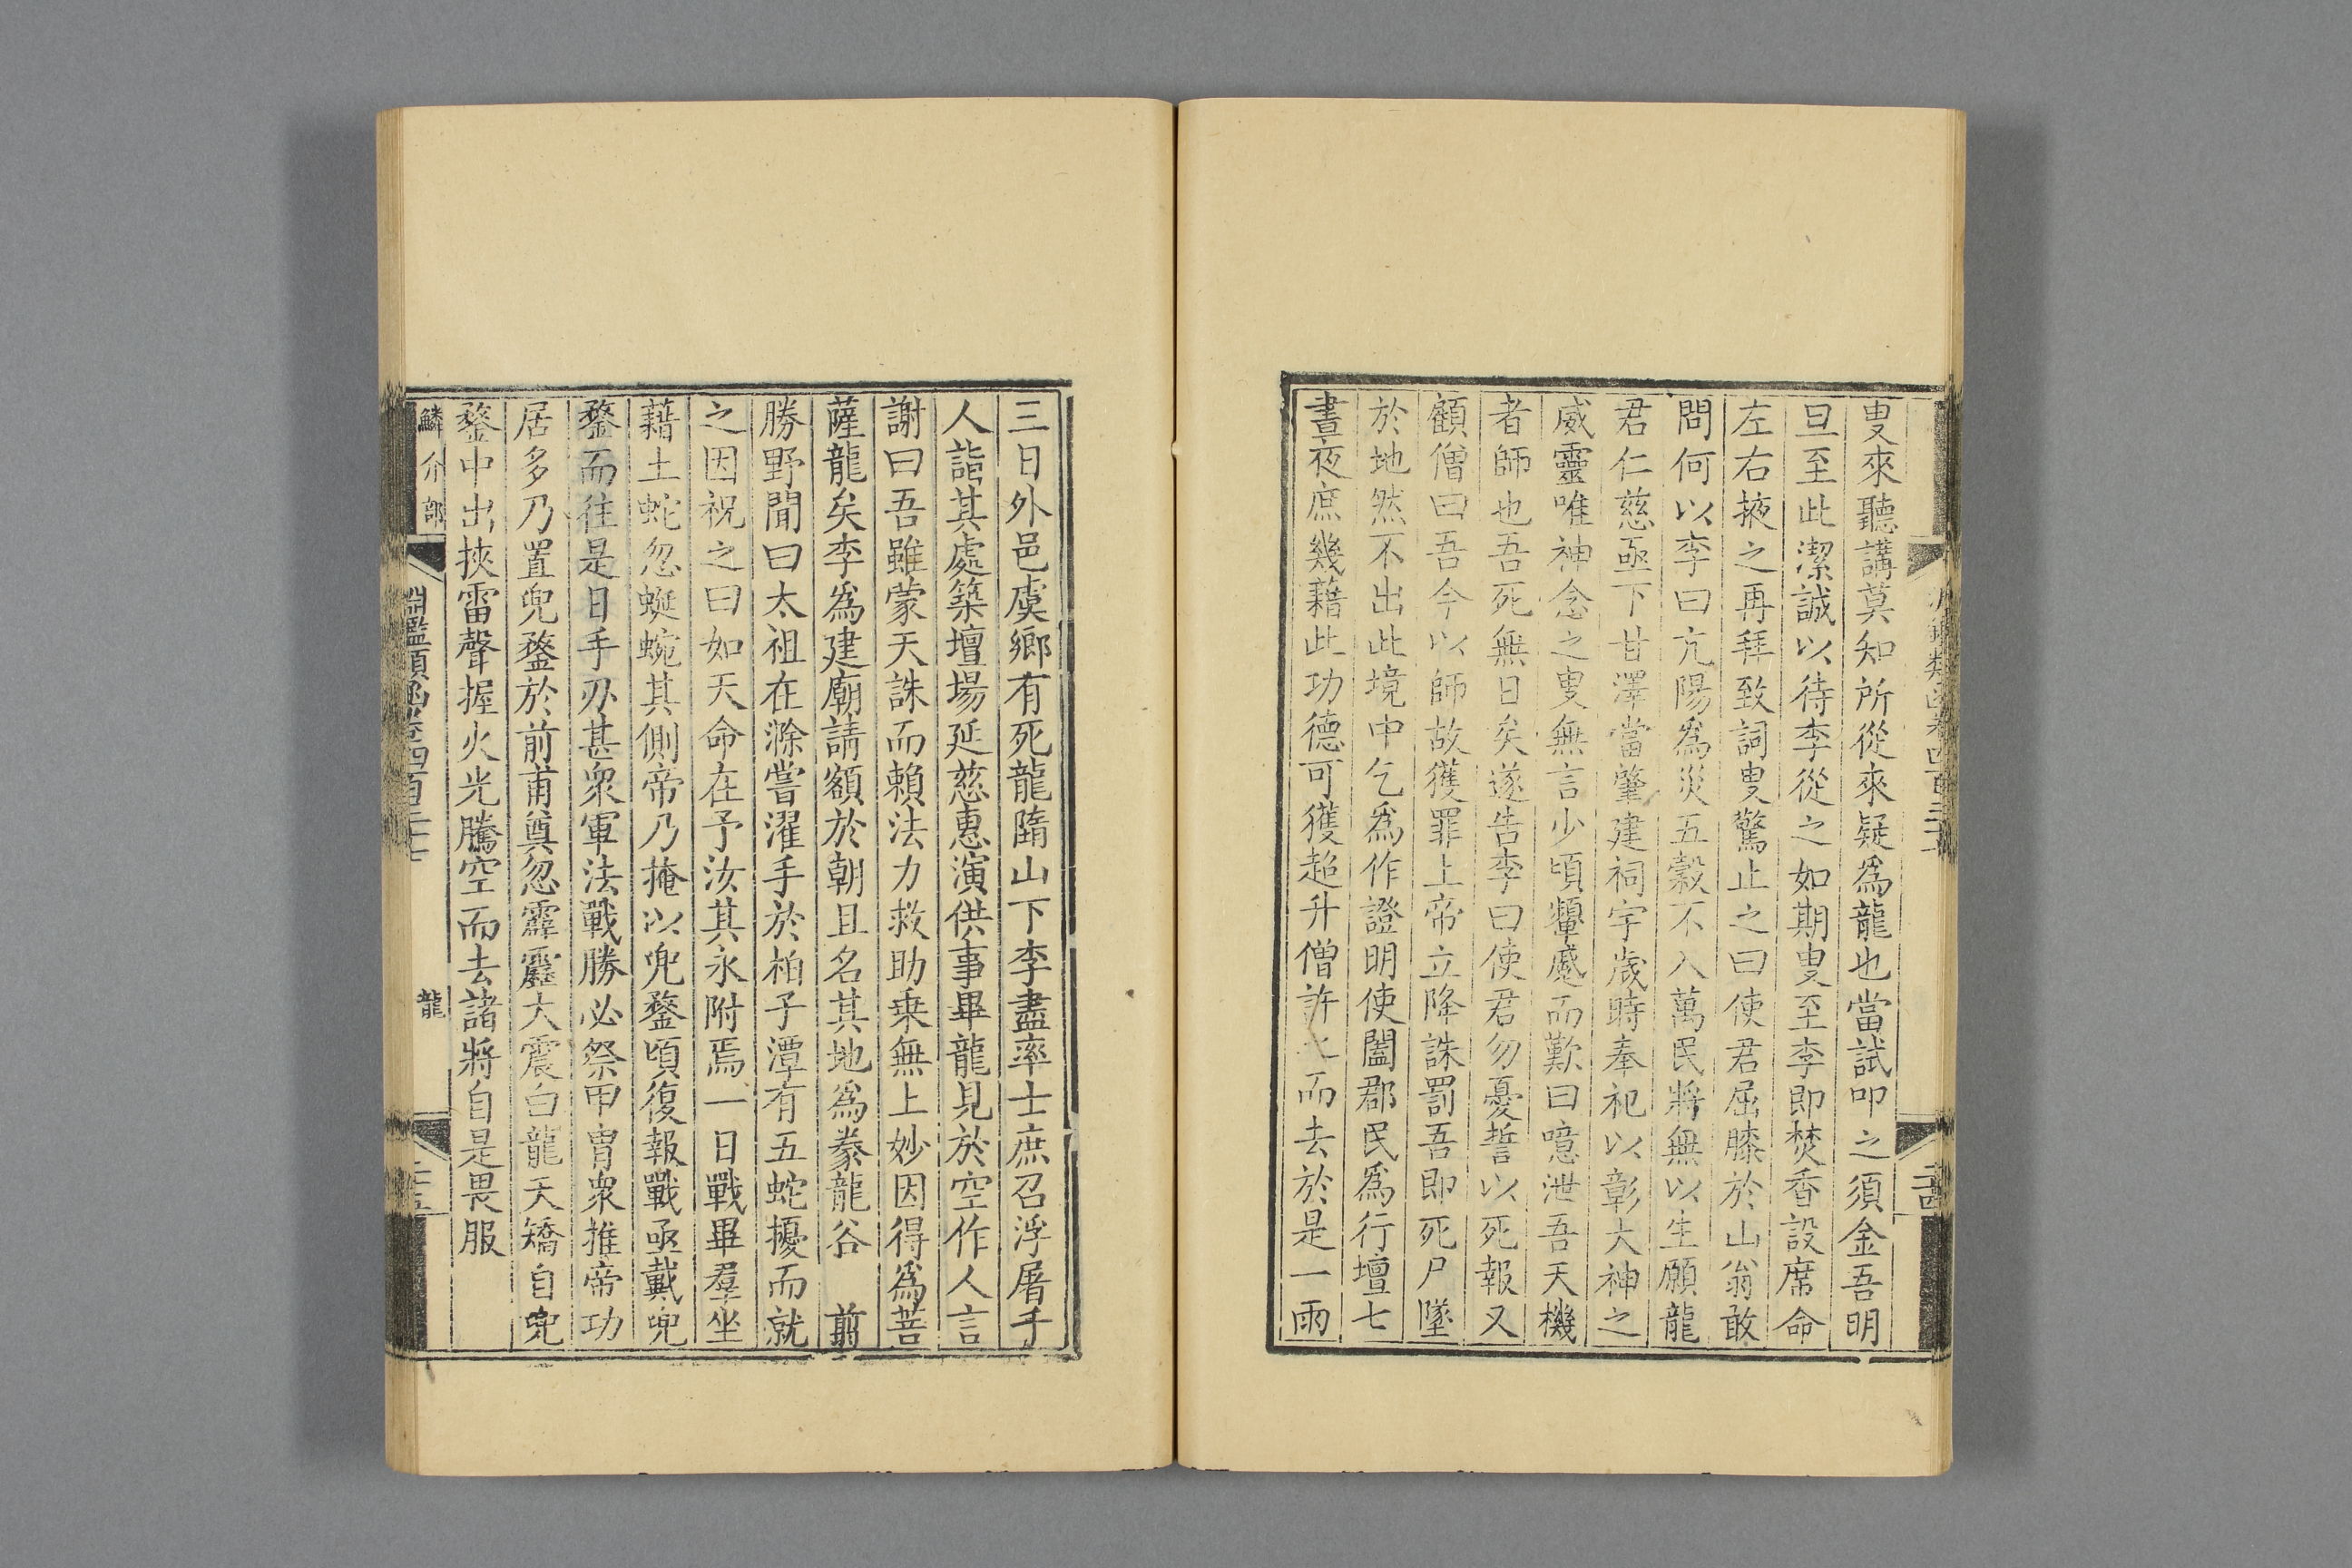 叟來聽講莫知所從來疑爲龍也當試叩之須金吾明
旦至此潔誠以待李從之如期叟至李即焚香設席命
左右掖之再拜致詞叟驚止之曰使君屈膝於山翁敢
問何以李曰亢陽爲災五穀不入萬民將無以生願龍
君仁慈亟下甘澤當肇建祠宇歲時奉祀以彰大神之
威靈唯神念之叟無言少頃顰慼而歎曰噫泄吾天機
者師也吾死無日矣遂告李曰使君勿憂誓以死報又
顧僧曰吾今以師故獲罪上帝立降誅罰吾即死尸墜
於地然不出此境中乞爲作證明使闔郡民爲行壇七
晝夜庶幾藉此功德可獲超升僧許之而去於是一雨
二十四
三日外邑虞鄉有死龍隋山下李盡率士庶召浮屠手
人詣其處築壇場延慈惠演供事畢龍見於空作人言
謝曰吾雖蒙天誅而賴法力救助乗無上妙因得爲菩
薩龍矣李爲建廟請額於朝且名其地爲豢龍谷 翦
勝野聞曰太祖在滁嘗濯手於柏子潭有五蛇擾而就
之因祝之曰如天命在予汝其永附焉一日戰畢羣坐
藉土蛇忽蜒蜿其側帝乃掩以兜鍪頃復報戰亟戴兜
鍪而往是日手刃甚衆軍法戰勝必祭甲冑衆推帝功
居多乃置兜鍪於前甫奠忽霹靂大震白龍天矯自兜
鍪中出挾雷聲握火光騰空而去諸將自是畏服
鱗介部 淵鑑類函卷四百三十七 龍 二十五